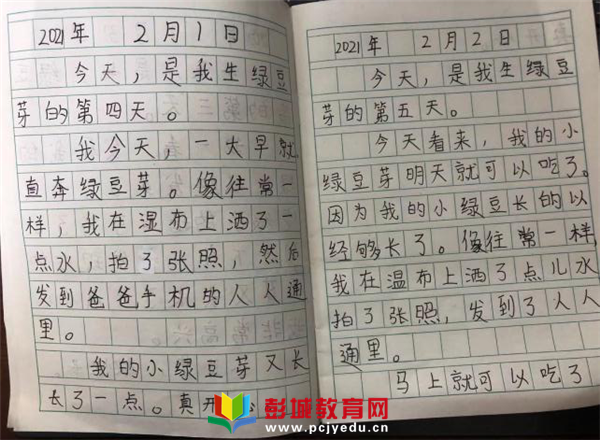 2021年 2月1日
今天，是我生绿豆
芽的第四天。
我今天，一大早就
直奔绿豆芽。像往常一
样，我在湿布上洒了一
点水，拍了张照，然后
发到爸爸手机的人人通
里。
我的小绿豆芽又长
长了一点。真开
2021年 2月2日
今天，是我生绿豆
芽的第五天。
今天看来，我的小
绿豆芽明天就可以吃了。
因为我的小绿豆长的以
经够长了。像往常一样，
我在温布上洒了点儿水
拍了张照，发到了人人
通里。
马上就可以吃了
彭城教育网
www.pcjyedu.cn